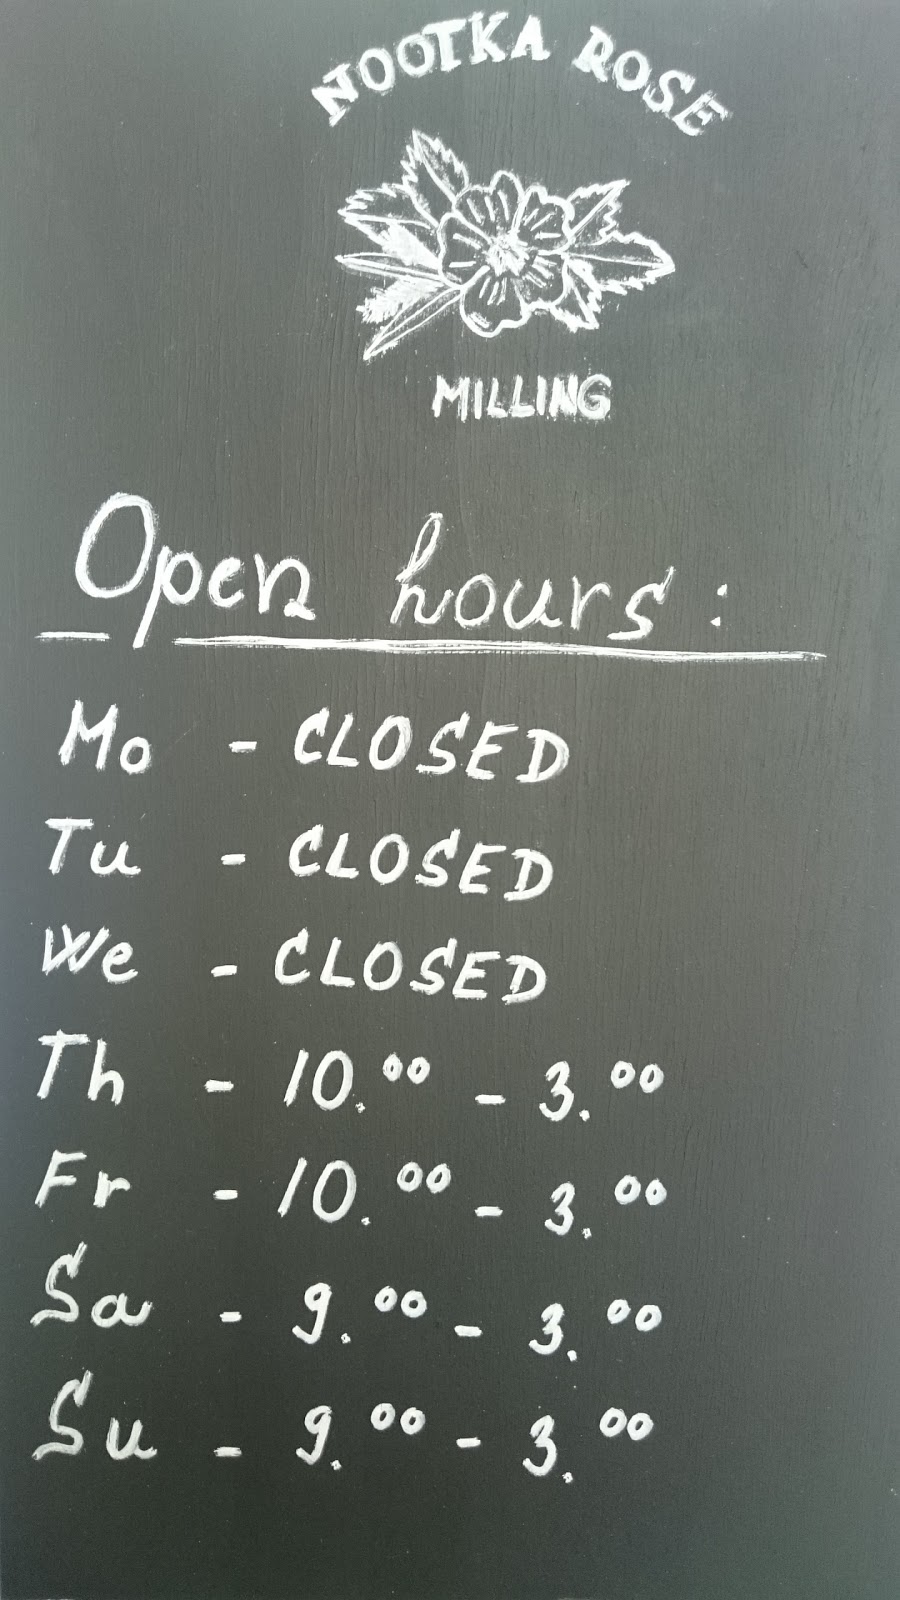 NOOTKA ROSE
MILLING
Open hours:
Mo - CLOSED
Tu - CLOSED
We - CLOSED
Th - 10.00 - 3.00
Fr - 10.00 - 3.00
Sa - 9.00 - 3.00
Su - 9.00 - 3.00